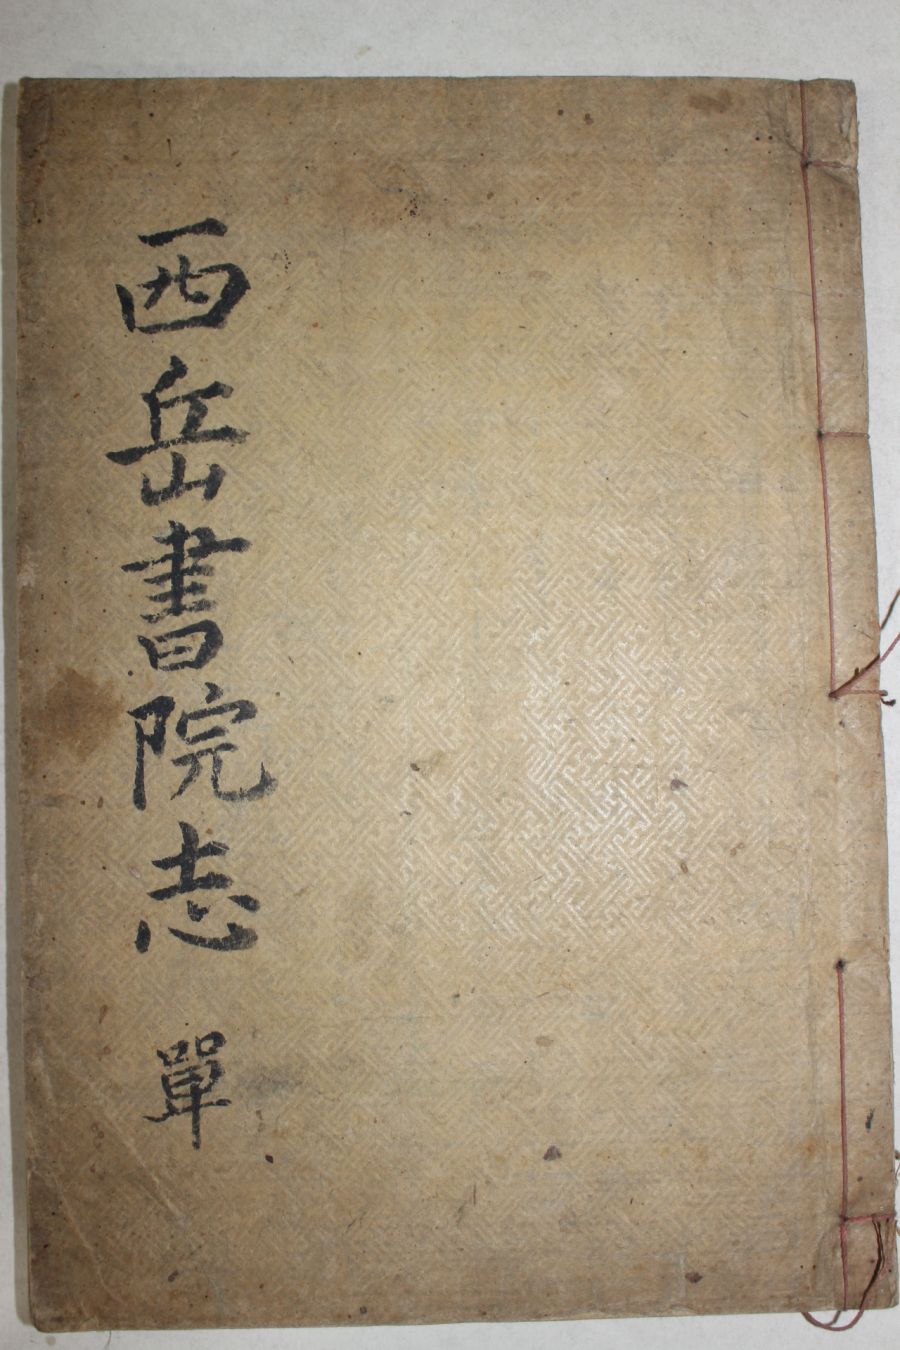 西岳書院志 單